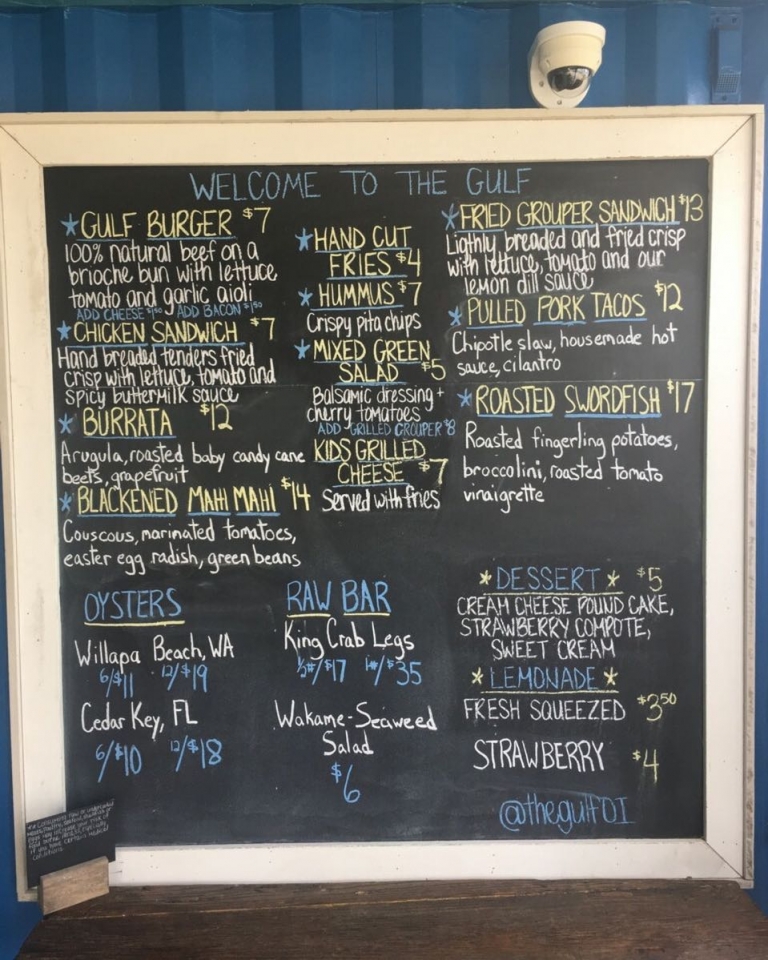 WELCOME TO THE GULF
*GULF BURGER $7
100% natural beef on a
brioche bun with lettuce
tomato and garlic aioli
ADD CHEESE $1.50 ADD BACON $1.50
*CHICKEN SANDWICH $7
Hand breaded tenders fried
crisp with lettuce, tomato and
spicy buttermilk sauce
*BURRATA $12
Arugula, roasted baby candy cane
beets, grapefruit
*BLACKENED MAHI MAHI $14
Couscous, marinated tomatoes,
easter egg radish, green beans
*HAND CUT
FRIES $4
*HUMMUS $7
Crispy pita chips
*MIXED GREEN
SALAD $5
Balsamic dressing +
cherry tomatoes
ADD GRILLED GROUPER $8
KIDS GRILLED
CHEESE $7
Served with fries
*FRIED GROUPER SANDWICH $13
Lighly breaded and fried crisp
with lettuce, tomato and our
lemon dill sauce
*PULLED PORK TACOS $12
Chipotle slaw, housemade hot
sauce, cilantro
*ROASTED SWORDFISH $17
Roasted fingerling potatoes,
broccolini, roasted tomato
vinaigrette
OYSTERS
Willapa Beach, WA
6/$11 12/$19
Cedar Key, FL
6/$10 12/$18
RAW BAR
King Crab Legs
½#/$17 1#/$35
Wakame-Seaweed
Salad
$6
*DESSERT* $5
CREAM CHEESE POUND CAKE,
STRAWBERRY COMPOTE,
SWEET CREAM
*LEMONADE*
FRESH SQUEEZED $3.50
STRAWBERRY $4
@thegulfOI